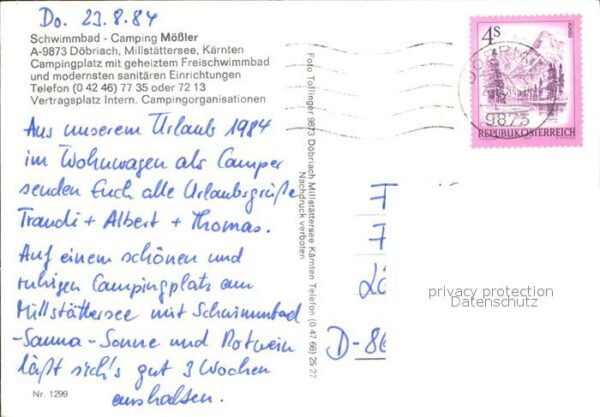 Do. 23.8.84
Schwimmbad - Camping Mößler
A-9873 Döbriach, Millstättersee, Kärnten
Campingplatz mit geheiztem Freischwimmbad
und modernsten sanitären Einrichtungen
Telefon (0 42 46) 77 35 oder 72 13
Vertragsplatz Intern. Campingorganisationen
Aus unserem Urlaub 1984
im Wohnwagen als Camper
senden Euch alle Urlaubsgrüße
Traudi + Albert + Thomas.
Auf einem schönen und
ruhigen Campingplatz am
Millstättersee mit Schwimmbad
-Sauna-Sonne und Rotwein
läßt sich's gut 3 Wochen
aushalten.
Nr. 1299
Foto Tollinger 9873 Döbriach Millstättersee Kärnten Telefon (0 47 66) 25 27
Nachdruck verboten
4S
9873
REPUBLIK ÖSTERREICH
D-86
privacy protection
Datenschutz